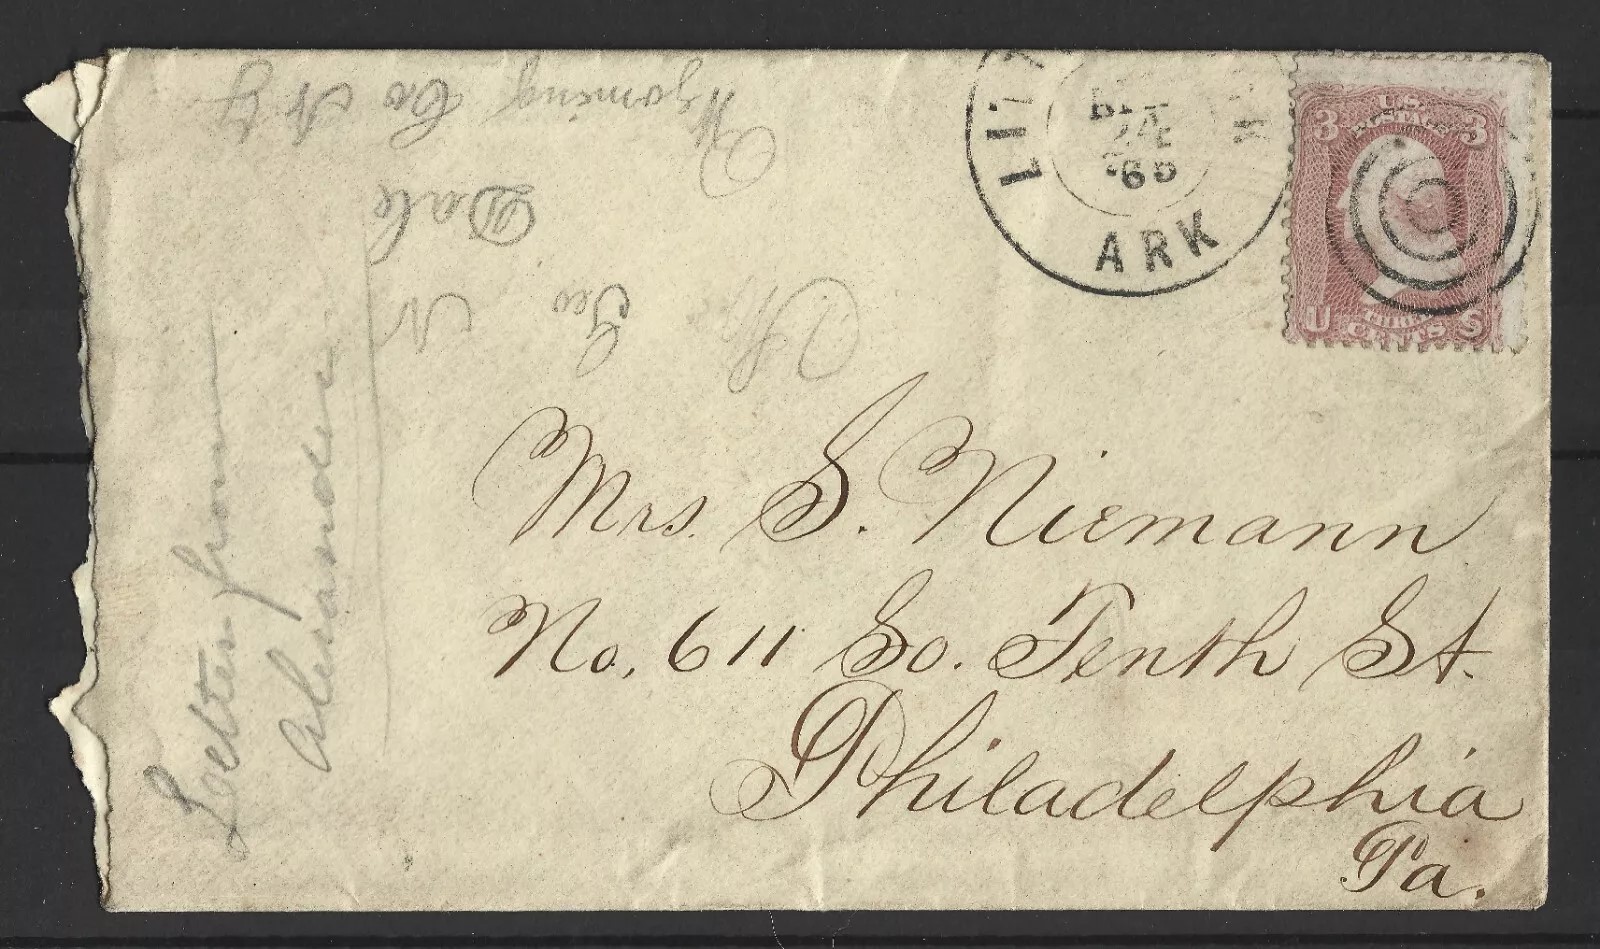 Mrs. S. Niemann
No. 611 So. Tenth St.
Philadelphia
Pa.
LIT
24
65
ARK
U.S.
POSTAGE
3 3
THREE
U CENTS S
Letter from
Wyoming Co N Y
Dale
Geo N